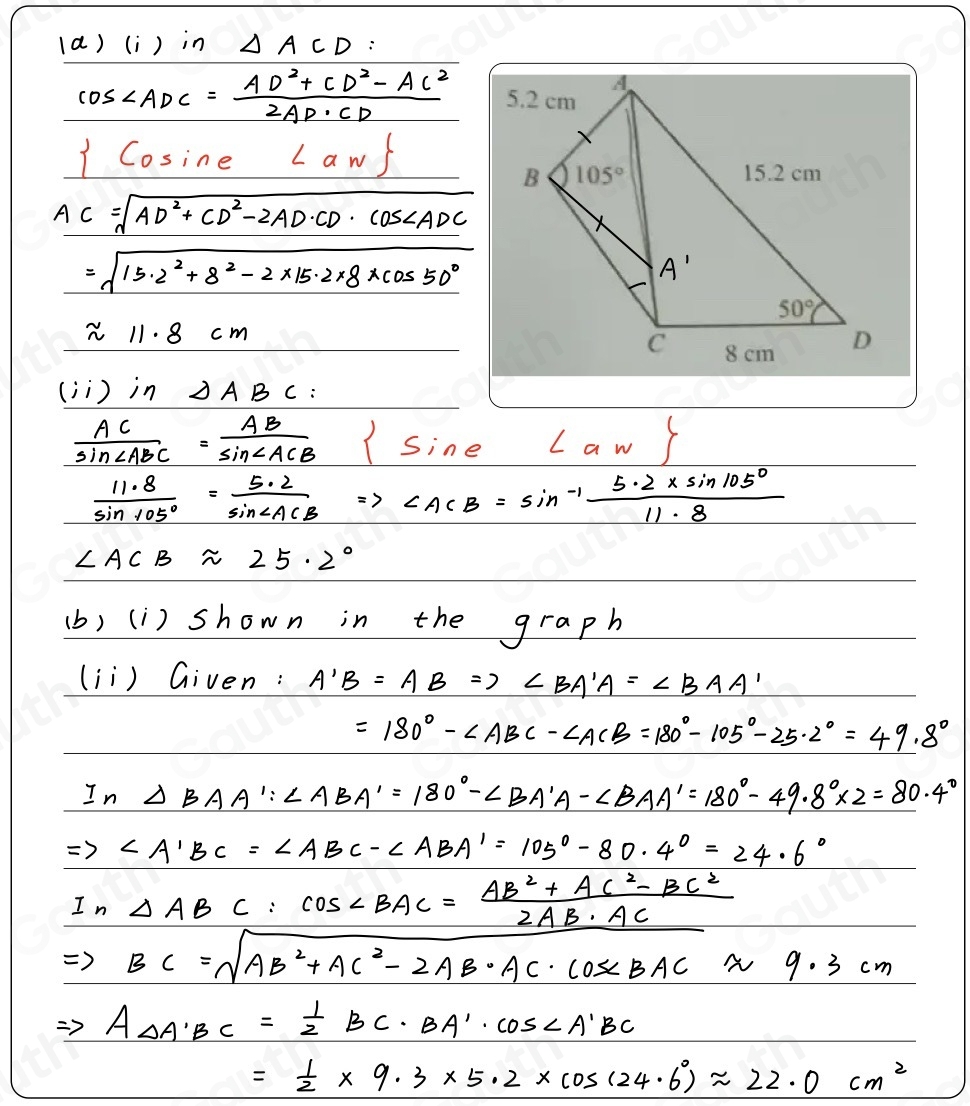 (a) (i) in △ACD:
cos∠ADC = (AD² + CD² - AC²) / (2AD·CD)
{Cosine Law}
AC = √(AD² + CD² - 2AD·CD·cos∠ADC)
= √(15.2² + 8² - 2×15.2×8×cos50°)
≈ 11.8 cm
A
5.2 cm
B
105°
15.2 cm
A'
50°
C
D
8 cm
(ii) in △ABC:
AC / sin∠ABC = AB / sin∠ACB {Sine Law}
11.8 / sin105° = 5.2 / sin∠ACB => ∠ACB = sin⁻¹ (5.2 × sin105°) / 11.8
∠ACB ≈ 25.2°
(b) (i) Shown in the graph
(ii) Given: A'B = AB => ∠BA'A = ∠BAA'
= 180° - ∠ABC - ∠ACB = 180° - 105° - 25.2° = 49.8°
In △BAA': ∠ABA' = 180° - ∠BA'A - ∠BAA' = 180° - 49.8°×2 = 80.4°
=> ∠A'BC = ∠ABC - ∠ABA' = 105° - 80.4° = 24.6°
In △ABC: cos∠BAC = (AB² + AC² - BC²) / (2AB·AC)
=> BC = √(AB² + AC² - 2AB·AC·cos∠BAC) ≈ 9.3 cm
=> A△A'BC = ½ BC·BA'·cos∠A'BC
= ½ × 9.3 × 5.2 × cos(24.6°) ≈ 22.0 cm²
Gauth